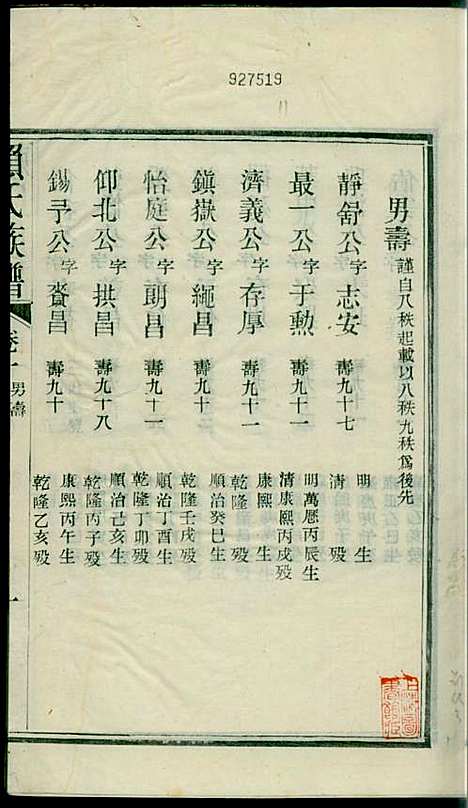 927519
男壽 謹自八秩起載以八秩九秩爲後先
靜舒公 字志安 壽九十七 明 生 清 歿
最一公 字于勲 壽九十一 明萬厯丙辰生 清康熙丙戍歿
濟義公 字存厚 壽九十一 康熙 生 乾隆 歿
鎭嶽公 字繩昌 壽九十 順治癸巳生 乾隆壬戍歿
怡庭公 字朗昌 壽九十一 順治丁酉生 乾隆丁卯歿
仰北公 字拱昌 壽九十八 順治己亥生 乾隆丙子歿
錫予公 字賚昌 壽九十 康熙丙午生 乾隆乙亥歿
賴氏族譜 卷十 男壽 一